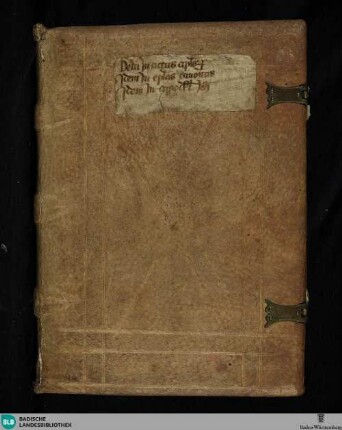 Beda in actus aplo℞
Item in eplas canonicas
Item in
BLB
BADISCHE
LANDESBIBLIOTHEK
Baden-Württemberg